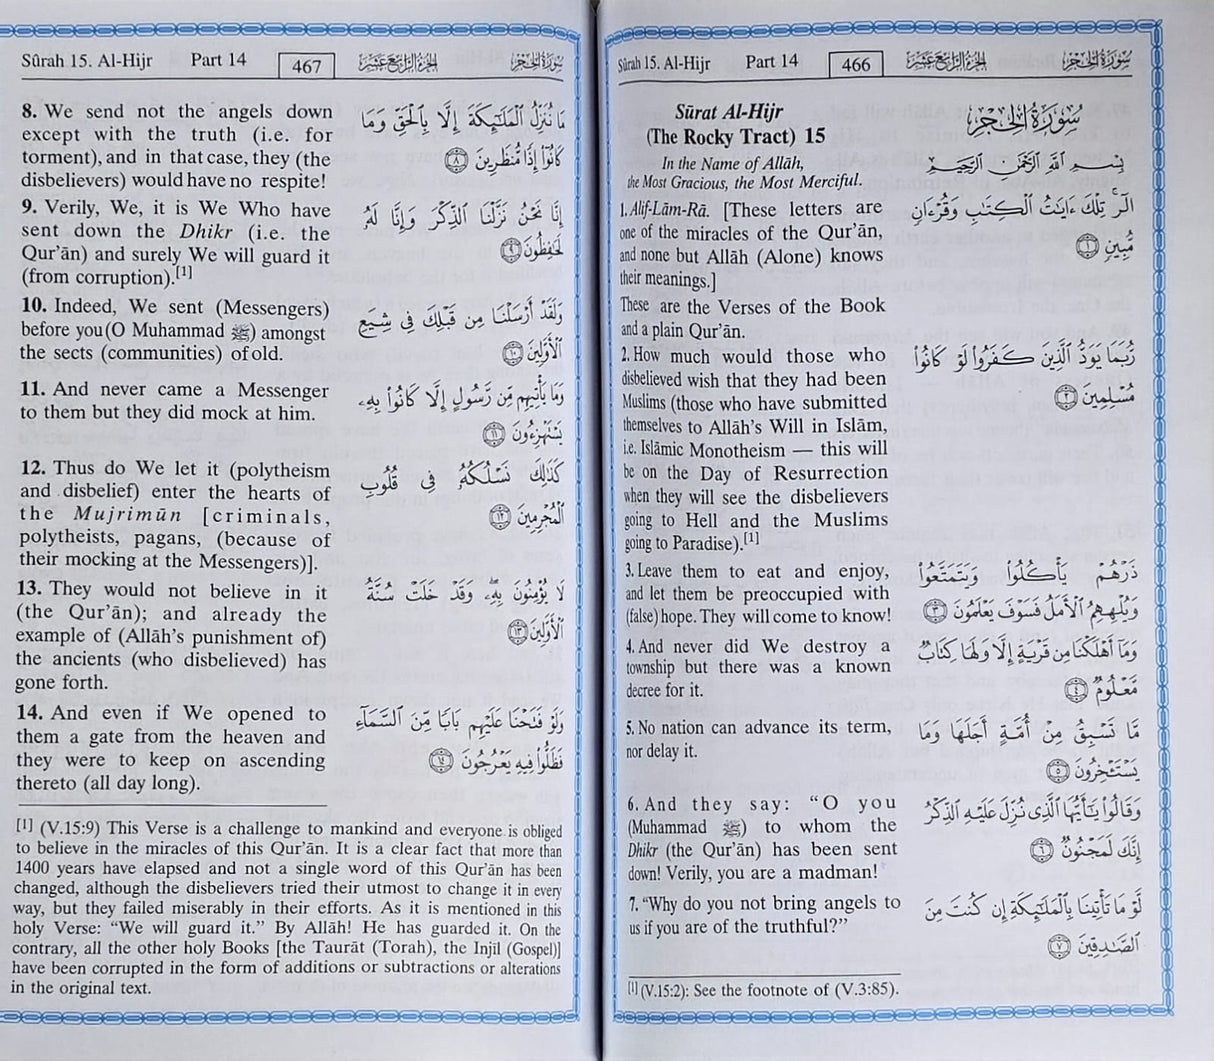 Sûrah 15. Al-Hijr Part 14 466 الجزء الرابع عشر سورة الحجر
Sūrat Al-Hijr
(The Rocky Tract) 15
سورة الحجر
In the Name of Allāh,
the Most Gracious, the Most Merciful.
بِسْمِ اللَّهِ الرَّحْمَٰنِ الرَّحِيمِ
1. Alif-Lām-Rā. [These letters are
one of the miracles of the Qur’ān,
and none but Allāh (Alone) knows
their meanings.]
These are the Verses of the Book
and a plain Qur’ān.
الٓرۚ تِلْكَ ءَايَٰتُ ٱلْكِتَٰبِ وَقُرْءَانٍ
مُّبِينٍ ١
2. How much would those who
disbelieved wish that they had been
Muslims (those who have submitted
themselves to Allāh’s Will in Islām,
i.e. Islāmic Monotheism — this will
be on the Day of Resurrection
when they will see the disbelievers
going to Hell and the Muslims
going to Paradise).[1]
رُّبَمَا يَوَدُّ ٱلَّذِينَ كَفَرُوا۟ لَوْ كَانُوا۟
مُسْلِمِينَ ٢
3. Leave them to eat and enjoy,
and let them be preoccupied with
(false) hope. They will come to know!
ذَرْهُمْ يَأْكُلُوا۟ وَيَتَمَتَّعُوا۟
وَيُلْهِهِمُ ٱلْأَمَلُ فَسَوْفَ يَعْلَمُونَ ٣
4. And never did We destroy a
township but there was a known
decree for it.
وَمَآ أَهْلَكْنَا مِن قَرْيَةٍ إِلَّا وَلَهَا كِتَابٌ
مَّعْلُومٌ ٤
5. No nation can advance its term,
nor delay it.
مَّا تَسْبِقُ مِنْ أُمَّةٍ أَجَلَهَا وَمَا
يَسْتَـْٔخِرُونَ ٥
6. And they say: “O you
(Muhammad ﷺ) to whom the
Dhikr (the Qur’ān) has been sent
down! Verily, you are a madman!
وَقَالُوا۟ يَٰٓأَيُّهَا ٱلَّذِى نُزِّلَ عَلَيْهِ ٱلذِّكْرُ
إِنَّكَ لَمَجْنُونٌ ٦
7. “Why do you not bring angels to
us if you are of the truthful?”
لَّوْ مَا تَأْتِينَا بِٱلْمَلَٰٓئِكَةِ إِن كُنتَ مِنَ
ٱلصَّٰدِقِينَ ٧
[1] (V.15:2): See the footnote of (V.3:85).
Sûrah 15. Al-Hijr Part 14 467 الجزء الرابع عشر سورة الحجر
8. We send not the angels down
except with the truth (i.e. for
torment), and in that case, they (the
disbelievers) would have no respite!
مَا نُنَزِّلُ ٱلْمَلَٰٓئِكَةَ إِلَّا بِٱلْحَقِّ وَمَا
كَانُوٓا۟ إِذًا مُّنظَرِينَ ٨
9. Verily, We, it is We Who have
sent down the Dhikr (i.e. the
Qur’ān) and surely We will guard it
(from corruption).[1]
إِنَّا نَحْنُ نَزَّلْنَا ٱلذِّكْرَ وَإِنَّا لَهُۥ
لَحَٰفِظُونَ ٩
10. Indeed, We sent (Messengers)
before you (O Muhammad ﷺ) amongst
the sects (communities) of old.
وَلَقَدْ أَرْسَلْنَا مِن قَبْلِكَ فِى شِيَعِ
ٱلْأَوَّلِينَ ١٠
11. And never came a Messenger
to them but they did mock at him.
وَمَا يَأْتِيهِم مِّن رَّسُولٍ إِلَّا كَانُوا۟ بِهِۦ
يَسْتَهْزِءُونَ ١١
12. Thus do We let it (polytheism
and disbelief) enter the hearts of
the Mujrimūn [criminals,
polytheists, pagans, (because of
their mocking at the Messengers)].
كَذَٰلِكَ نَسْلُكُهُۥ فِى قُلُوبِ
ٱلْمُجْرِمِينَ ١٢
13. They would not believe in it
(the Qur’ān); and already the
example of (Allāh’s punishment of)
the ancients (who disbelieved) has
gone forth.
لَا يُؤْمِنُونَ بِهِۦ ۖ وَقَدْ خَلَتْ سُنَّةُ
ٱلْأَوَّلِينَ ١٣
14. And even if We opened to
them a gate from the heaven and
they were to keep on ascending
thereto (all day long).
وَلَوْ فَتَحْنَا عَلَيْهِم بَابًا مِّنَ ٱلسَّمَآءِ
فَظَلُّوا۟ فِيهِ يَعْرُجُونَ ١٤
[1] (V.15:9) This Verse is a challenge to mankind and everyone is obliged
to believe in the miracles of this Qur’ān. It is a clear fact that more than
1400 years have elapsed and not a single word of this Qur’ān has been
changed, although the disbelievers tried their utmost to change it in every
way, but they failed miserably in their efforts. As it is mentioned in this
holy Verse: “We will guard it.” By Allāh! He has guarded it. On the
contrary, all the other holy Books [the Taurāt (Torah), the Injīl (Gospel)]
have been corrupted in the form of additions or subtractions or alterations
in the original text.